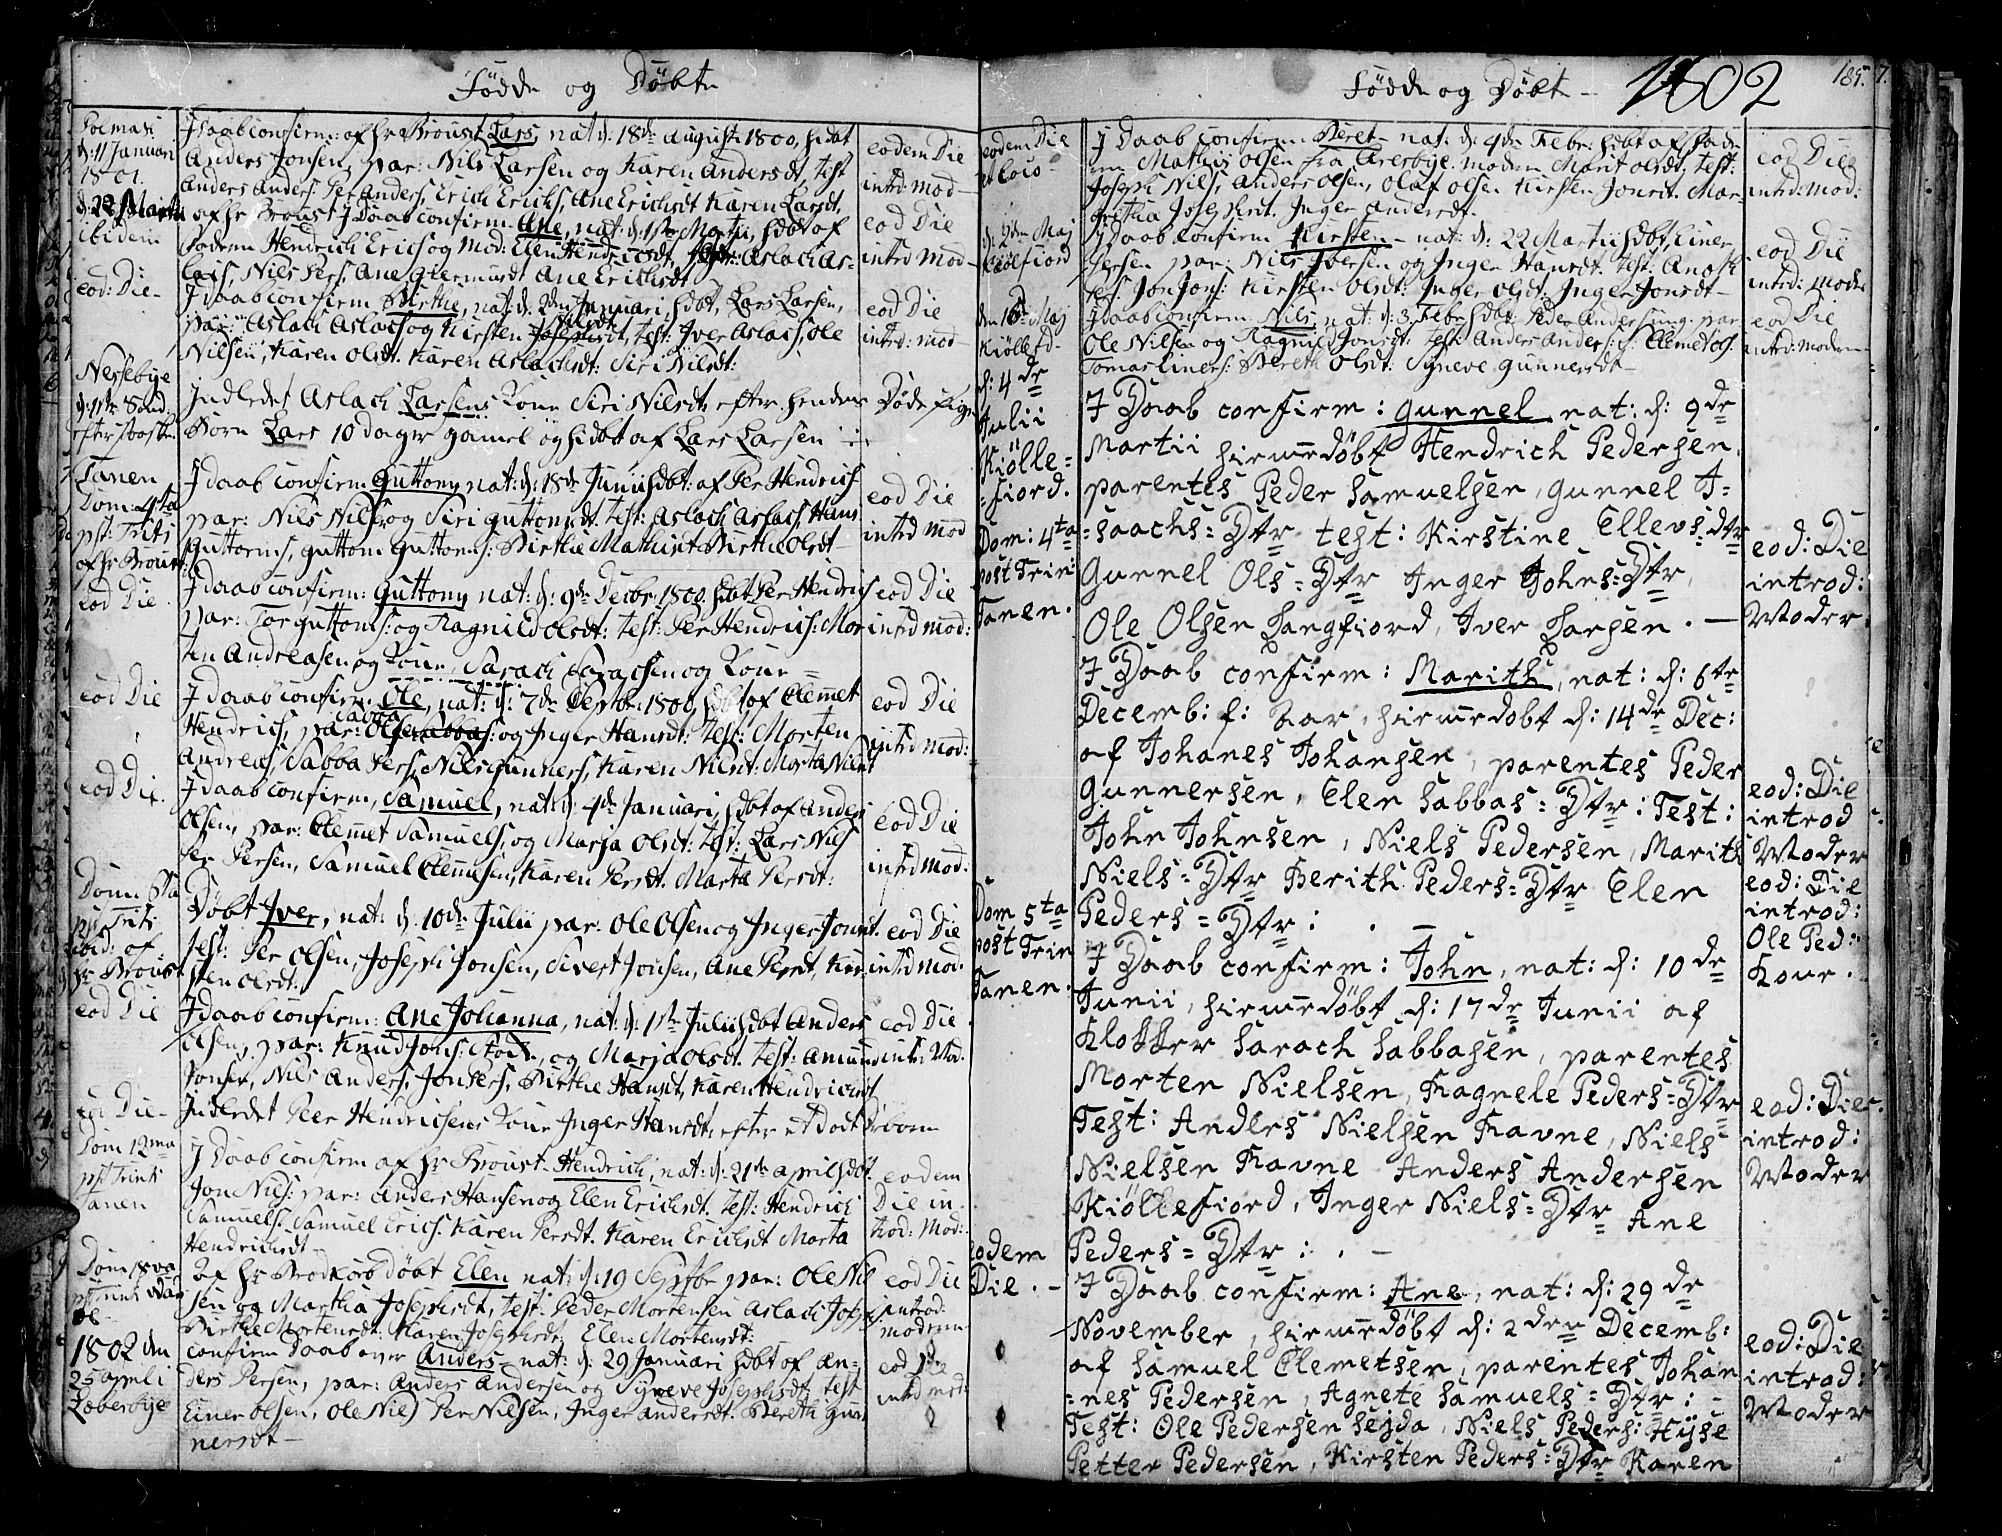 Fødde og Døbte
Polmak
d: 11 Januari
1801.
J Daab confirm: af hr Broust Lars, nat d: 18de august 1800, hdbt
Anders Jonsen, par: Nils Larsen og Karen Andersdt, test
Anders Anders: Per Anders, Erich Erichs, Ane Erichsdt Karen Larsdt.
eodem Die
intrd mod-
d: 22 Martii
ibidem
af hr Broust J Daab confirm: Ane, nat: d: 1ste Martii, hdbt af
faderen Hendrich Erics og Mod: Elen Hendricsdt, Aslach As-
lacs, Nils Pers, Ane Germundt Ane Erichsdt
eod Die
intrd mod-
eod: Die-
J daab confirm Birthe, nat: d: 2den Januari, hdbt, Lars Larsen,
par: Aslach Aslacs og Kirsten test: Iver Aslacs, Ole
Nilsen, Karen Olsdt. Karen Aslachsdt: Siri Nilsdt:
eod Die
intrd: mod-
Nessebye
Indledet Aslach Larsens Kone Siri Nilsdt, efter hendes
Børn Lars 10 dager gamel og hdbt af Lars Larsen
Døde
Tanen
Dom. 4ta
pst: Trits
af hr Broust
J daab confirm: Guttorm, nat: d: 18de Junii hdbt: af Per Hendrics
par: Nils Nils, og Siri Guttormsdt. test: Aslach Aslach, Hans
Guttorms, Guttorm Guttorms: Birthe Mathisdt Birthe Olsdt-
eod Die
intrd mod
eod Die
J daab confirm: Guttorm, nat: d: 9de Decbr: 1800, hdbt Per Hendrics
par: Tor Guttorms: og Ragnild Olsdt: test: Per Hendrics: Mor
ten Andreasen og Kone, Sarach Sarachsen og Kone
eod Die
intrd mod:
eod Die
J daab confirm: Ole, nat: d: 7de Septbr: 1800, hdbt af Clemet
Hendrics, par: og Inger Hansdt: test: Morten
Andreas, Sabba Pers, Nils Gunners, Karen Nilsdt. Marta Nilsdt
eod Die
intrd mod:
eod Die.
J daab confirm, Samuel, nat: d: 4de Januari, hdbt af Anders
Olsen, par: Clemet Samuels, og Marja Olsdt: test: Lars Nils
Per Persen, Samuel Clemetsen, Karen Persdt. Marta Persdt:
eod Die
intrd mod:
Dom. 8ta
pst Trits
ibid: af
hr Broust
Døbt Iver, nat: d. 10de Julii par: Ole Olsen og Inger Jonsdt.
test: Per Olsen, Joseph Jonsen, Sivert Jonsen, Ane Persdt, Kir
sten Olsdt.
eod Die
intrd mod.
eod Die
J daab confirm: Ane Johanna, nat: d: 1ste Julii hdbt Anders
Olsen, par: Knud Jons: og Marja Olsdt. test: Amund
Jonsen, Nils Anders, Jon Pers, Birthe Hansdt, Karen Hendricsdt
eod Die
intr: Mod.
eod Die-
Inderdet Peer Hendrichsens Kone Inger Hansdt, efter et Dødt Børn
Dom 12ma
pst Trinit
Tanen
J Daab confirm af hr Broust. Hendrich, nat: d: 21de april hdbt.
Jon Nils: par: Anders Hansen og Elen Erichsdt. test: Hendrich
Samuels. Samuel Erics. Karen Persdt. Karen Erichsdt Marta
Hendrichsdt-
eodem
Die in
trod: Mod:
Dom 18va
pst Trinit
Af hr Brodkorb døbt Elen nat: d: 19 Septbr par: Ole Nil
sen og Martha Josephsdt, test: Peder Mortensen Aslach Joseps
Birthe Mortensdt. Karen Josephsdt: Elen Mortensdt:
eod Die
introd:
moderen
1802 den
25 aprili
confirm Daab over Anders- nat: d: 29 Januari hdbt af An-
ders Persen, par: Anders Andersen og Syneve Josephsdt. test
Einer Olsen, Ole Nils Per Nilsen, Inger Andersdt. Bereth Gun
nersdt-
eod Die
intrd mod:
Fødde og Døbte-
1802
185.
eodem Die
et loco-
J Daab confirm. Beret- nat. d: 4de Febr: hdbt af Fade
ren Mathis Olsen fra moderen Marit Olsdt. test:
Joseph Nils, Anders Olsen, Olaf Olsen Kirsten Jonsdt. Mar-
gretha Josephsdt. Inger Andersdt.
eod Die
intrd: mod:
d: 2den Maj
Kiølfiord
J Daab confirm Kirsten- nat: d: 22 Martii hdbt, Einer
Persen par: Nils Iversen og Inger Hansdt. test:
Jon Jons: Kirsten Olsdt: Inger Olsdt. Inger Jonsdt-
eod Die
intrd: Moder
den 16 Maj
Kiøllefd-
J daab confirm: Nils, nat: d: 3 Febr hdbt Peder Anders ung: par
Ole Nilsen og Ragnild Jonsdt: test: Anders Anders: Clemet
Tomas Iners: Bereth Olsdt. Syneve Gunnersdt-
eod Die
intrd: moder-
d: 4de
Julii
Kiølle=
=fiord.
Dom: 4ta
post Trin:
Tanen.
J Daab confirm: Gunnel nat: d: 9de
Martii hiemmedøbt Hendrich Pedersen,
parentes Peder Samuelsen, Gunnel J=
=saachs=Dtr test: Kirstine Ellevs=dtr
Gunnel Ols=Dtr Inger Johns=Dtr,
Ole Olsen Langfiord, Iver Larsen.-
eod: Die
introd:
Moder.
J Daab confirm: Marith, nat: d: 6te
Decemb: f: Aar, hiemmedøbt d: 14de Dec:
af Johanes Johansen, parentes Peder
Gunnersen, Elen Sabbas=Dtr: Test:
John Johnsen, Niels Pedersen, Marith
Niels=Dtr Berith Peders=Dtr Elen
Peders=Dtr: . -
eod: Die
introd
Moder
eod: Die
introd:
Ole Ped:
Kone.
Dom 5ta
post Trin
Tanen.
J Daab confirm: John, nat: d: 10de
Junii, hiemmedøbt d: 17de Junii af
Klokker Sarach Sabbasen, parentes
Morten Nielsen, Ragnele Peders=Dtr
Test: Anders Nielsen Ravne, Niels
Nielsen Ravne Anders Andersen
Kiøllefiord, Inger Niels=Dtr Ane
Peders=Dtr: . -
eod: Die
introd:
Moder
eodem
Die. -
J Daab confirm: Ane, nat: d: 29de
November, hiemmedøbt d: 2den Decemb:
af Samuel Clemetsen, parentes Johan
=nes Pedersen, Agnete Samuels=Dtr: -
Test: Ole Pedersen Seyda, Niels Peders: Hyse
Petter Pedersen, Kirsten Peders=Dtr Karen
eod: Die
introd:
Moder